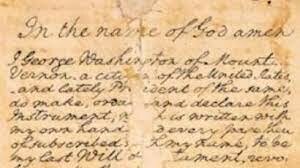 In the name of God amen
I George Washington of Mount
Vernon, a citizen of the United States,
and lately President of the same,
do make, ordain and declare this
Instrument, which is written with
my own hand and every page
subscribed with my name, to be
my last Will &